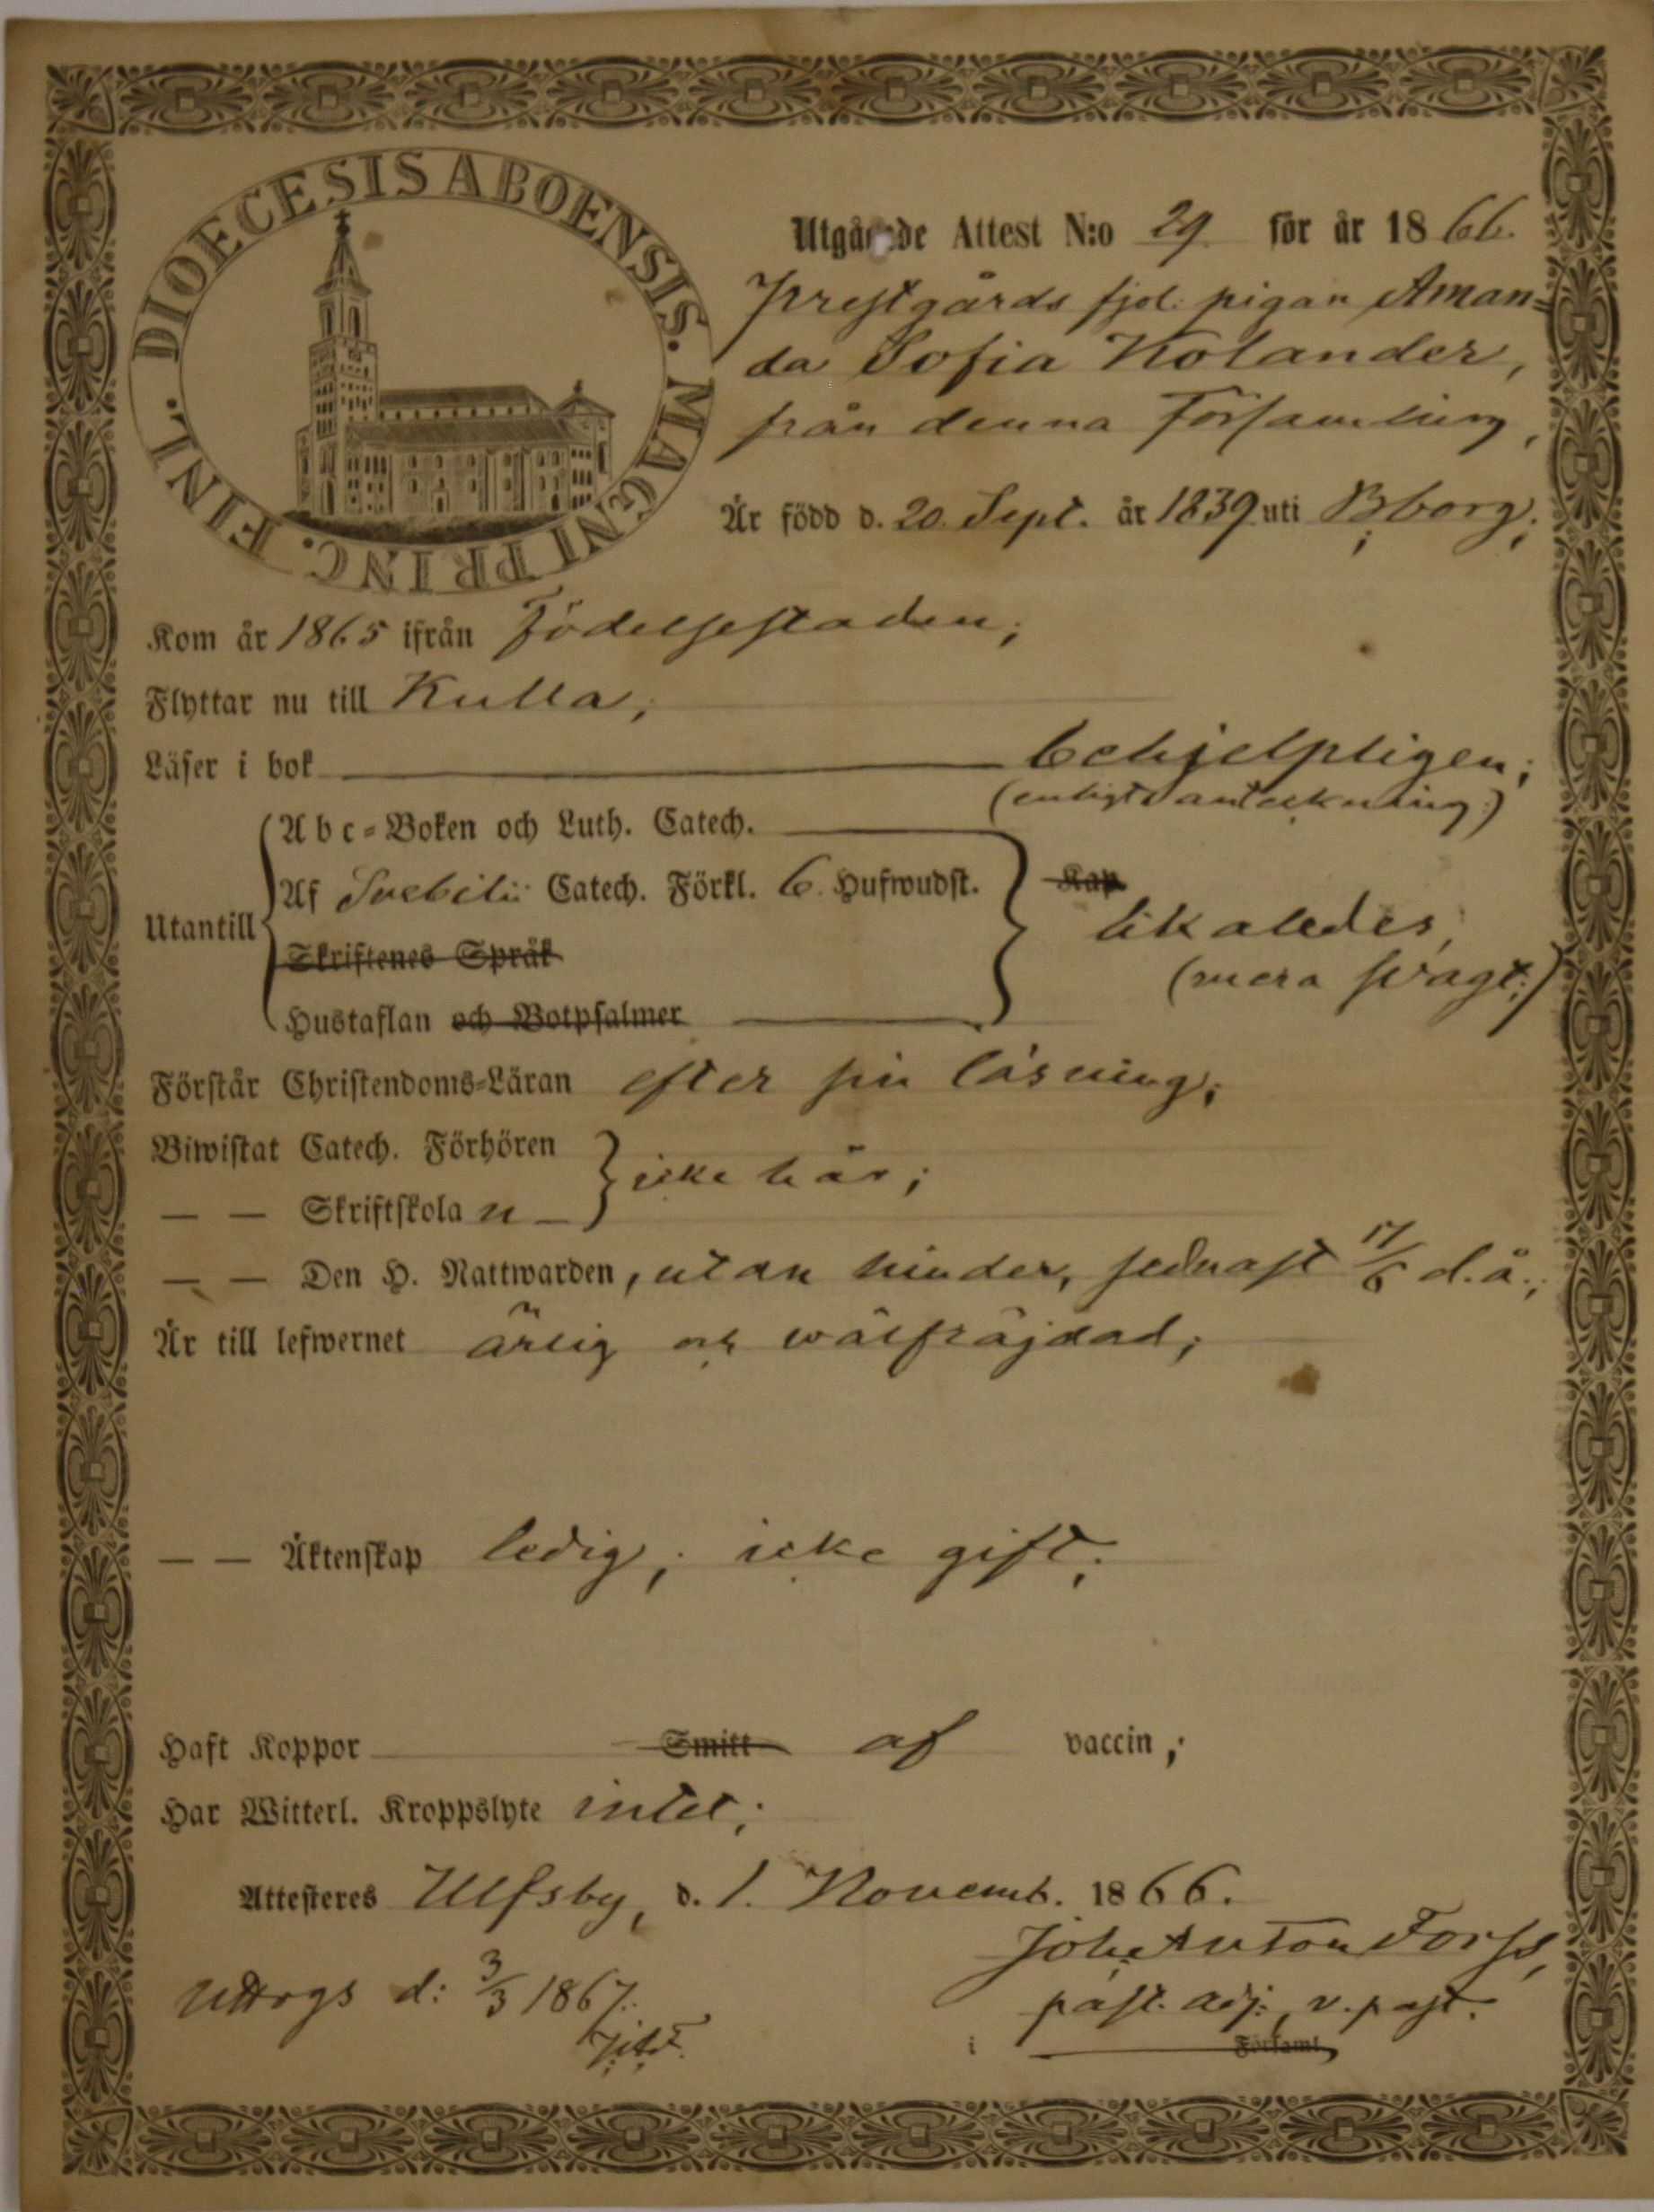 DIOECESIS ABOENSIS. MAGNI PRINC. FINL.
Utgående Attest N:o 29 för år 1866.
Prestgårds fjol. pigan Aman-
da Sofia Kolander,
från denna Församling,
Är född d. 20. Sept. år 1839 uti Bborg;
Kom år 1865 ifrån Födelsestaden;
Flyttar nu till Kulla;
Läser i bok behjelpligen;
(enligt anteckning:)
Abc-Boken och Luth. Catech.
Af Svebilii Catech. Förkl. 6. Hufwudst. Kap
Utantill likaledes,
Skriftenes Språk (mera svagt:)
Hustaflan och Botpsalmer
Förstår Christendoms-Läran efter sin läsning;
Biwistat Catech. Förhören
icke här;
— — Skriftskola n
— — Den H. Nattwarden, utan hinder, sednast 17/6 d.å.;
Är till lefwernet ärlig och wälfräjdad;
— — Äktenskap ledig; icke gift;
Haft Koppor Smitt af vaccin;
Har Witterl. Kroppslyte intet;
Attesteres Ulfsby, d. 1. Novemb. 1866.
Joh. Anton Forss,
d: 3/3 1867.
past. adj:, v. past.
i Församl.